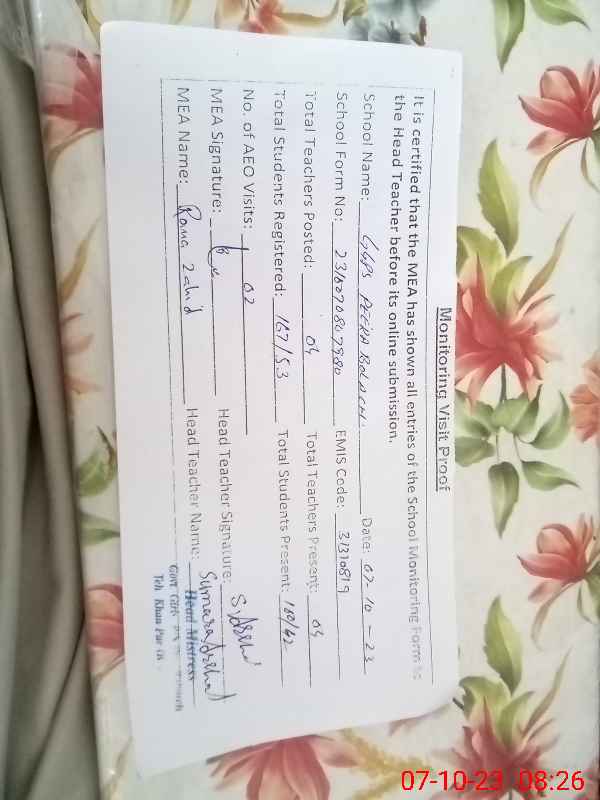 Monitoring Visit Proof
It is certified that the MEA has shown all entries of the School Monitoring Form to
the Head Teacher before its online submission.
School Name: GGPS PEERA BALOCH. Date: 07-10-23
School Form No: EMIS Code: 31310819
Total Teachers Posted: 04 Total Teachers Present: 04
Total Students Registered: 167/53 Total Students Present: 160/42
No. of AEO Visits: 02
MEA Signature: Head Teacher Signature:
MEA Name: Rana Zahid Head Teacher Name: Sumara Arshad
Head Mistress
Govt. Girls
Teh. Khan Pur
07-10-23 08:26